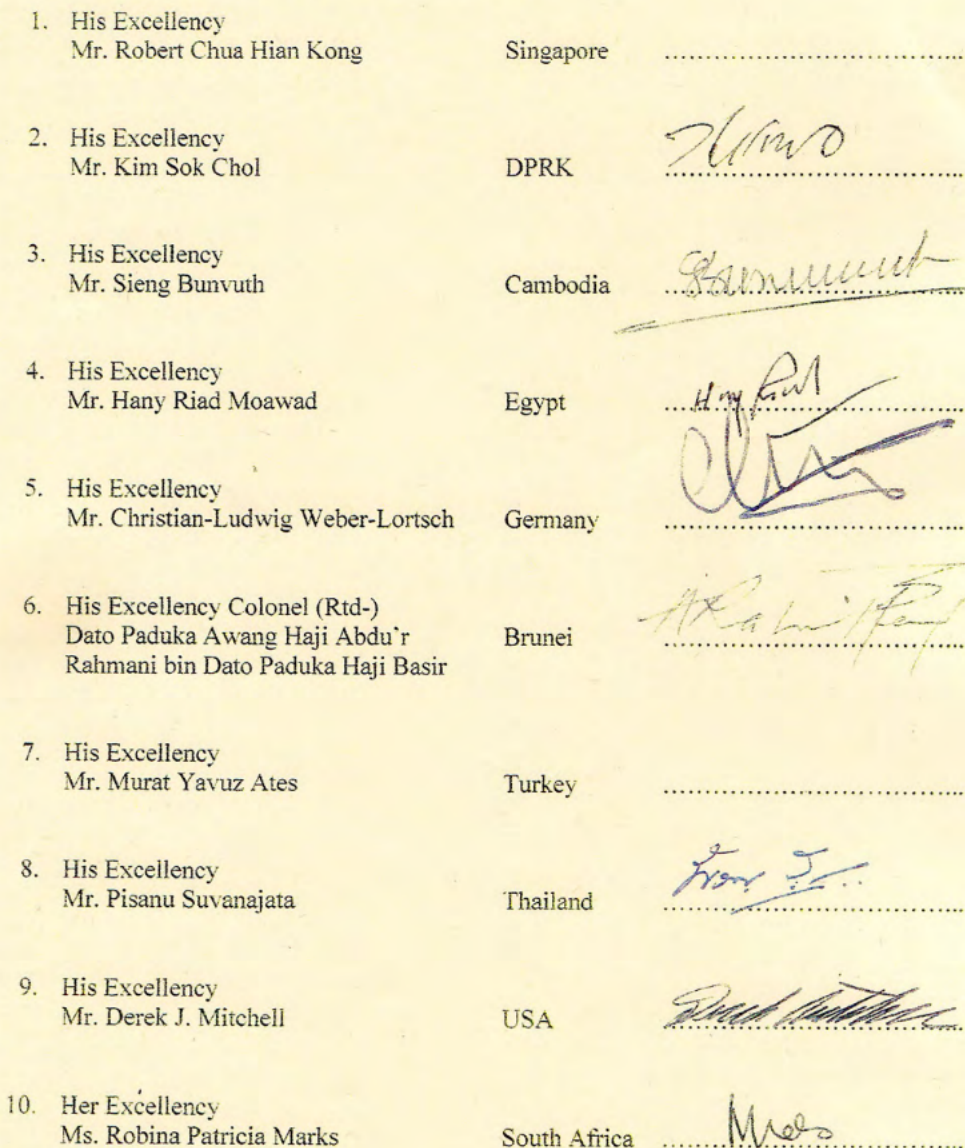 1. His Excellency
Mr. Robert Chua Hian Kong Singapore ................................
2. His Excellency
Mr. Kim Sok Chol DPRK ................................
3. His Excellency
Mr. Sieng Bunvuth Cambodia ................................
4. His Excellency
Mr. Hany Riad Moawad Egypt ................................
5. His Excellency
Mr. Christian-Ludwig Weber-Lortsch Germany ................................
6. His Excellency Colonel (Rtd-)
Dato Paduka Awang Haji Abdu'r Brunei ................................
Rahmani bin Dato Paduka Haji Basir
7. His Excellency
Mr. Murat Yavuz Ates Turkey ................................
8. His Excellency
Mr. Pisanu Suvanajata Thailand ................................
9. His Excellency
Mr. Derek J. Mitchell USA ................................
10. Her Excellency
Ms. Robina Patricia Marks South Africa ................................